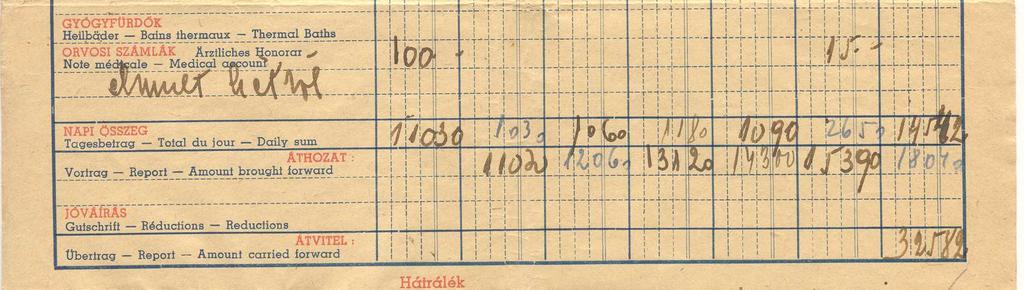 GYÓGYFÜRDŐK
Heilbäder — Bains thermaux — Thermal Baths
ORVOSI SZÁMLÁK Ärztliches Honorar
Note médicale — Medical account 100 - 15 - -
elmult hétről
NAPI ÖSSZEG
Tagesbetrag — Total du jour — Daily sum 11030 1030 1060 1180 1090 2650
ÁTHOZAT :
Vortrag — Report — Amount brought forward 12060 13120 14300 15390
JÓVÁÍRÁS
Gutschrift — Réductions — Reductions
ÁTVITEL :
Übertrag — Report — Amount carried forward 32582
Hátrálék